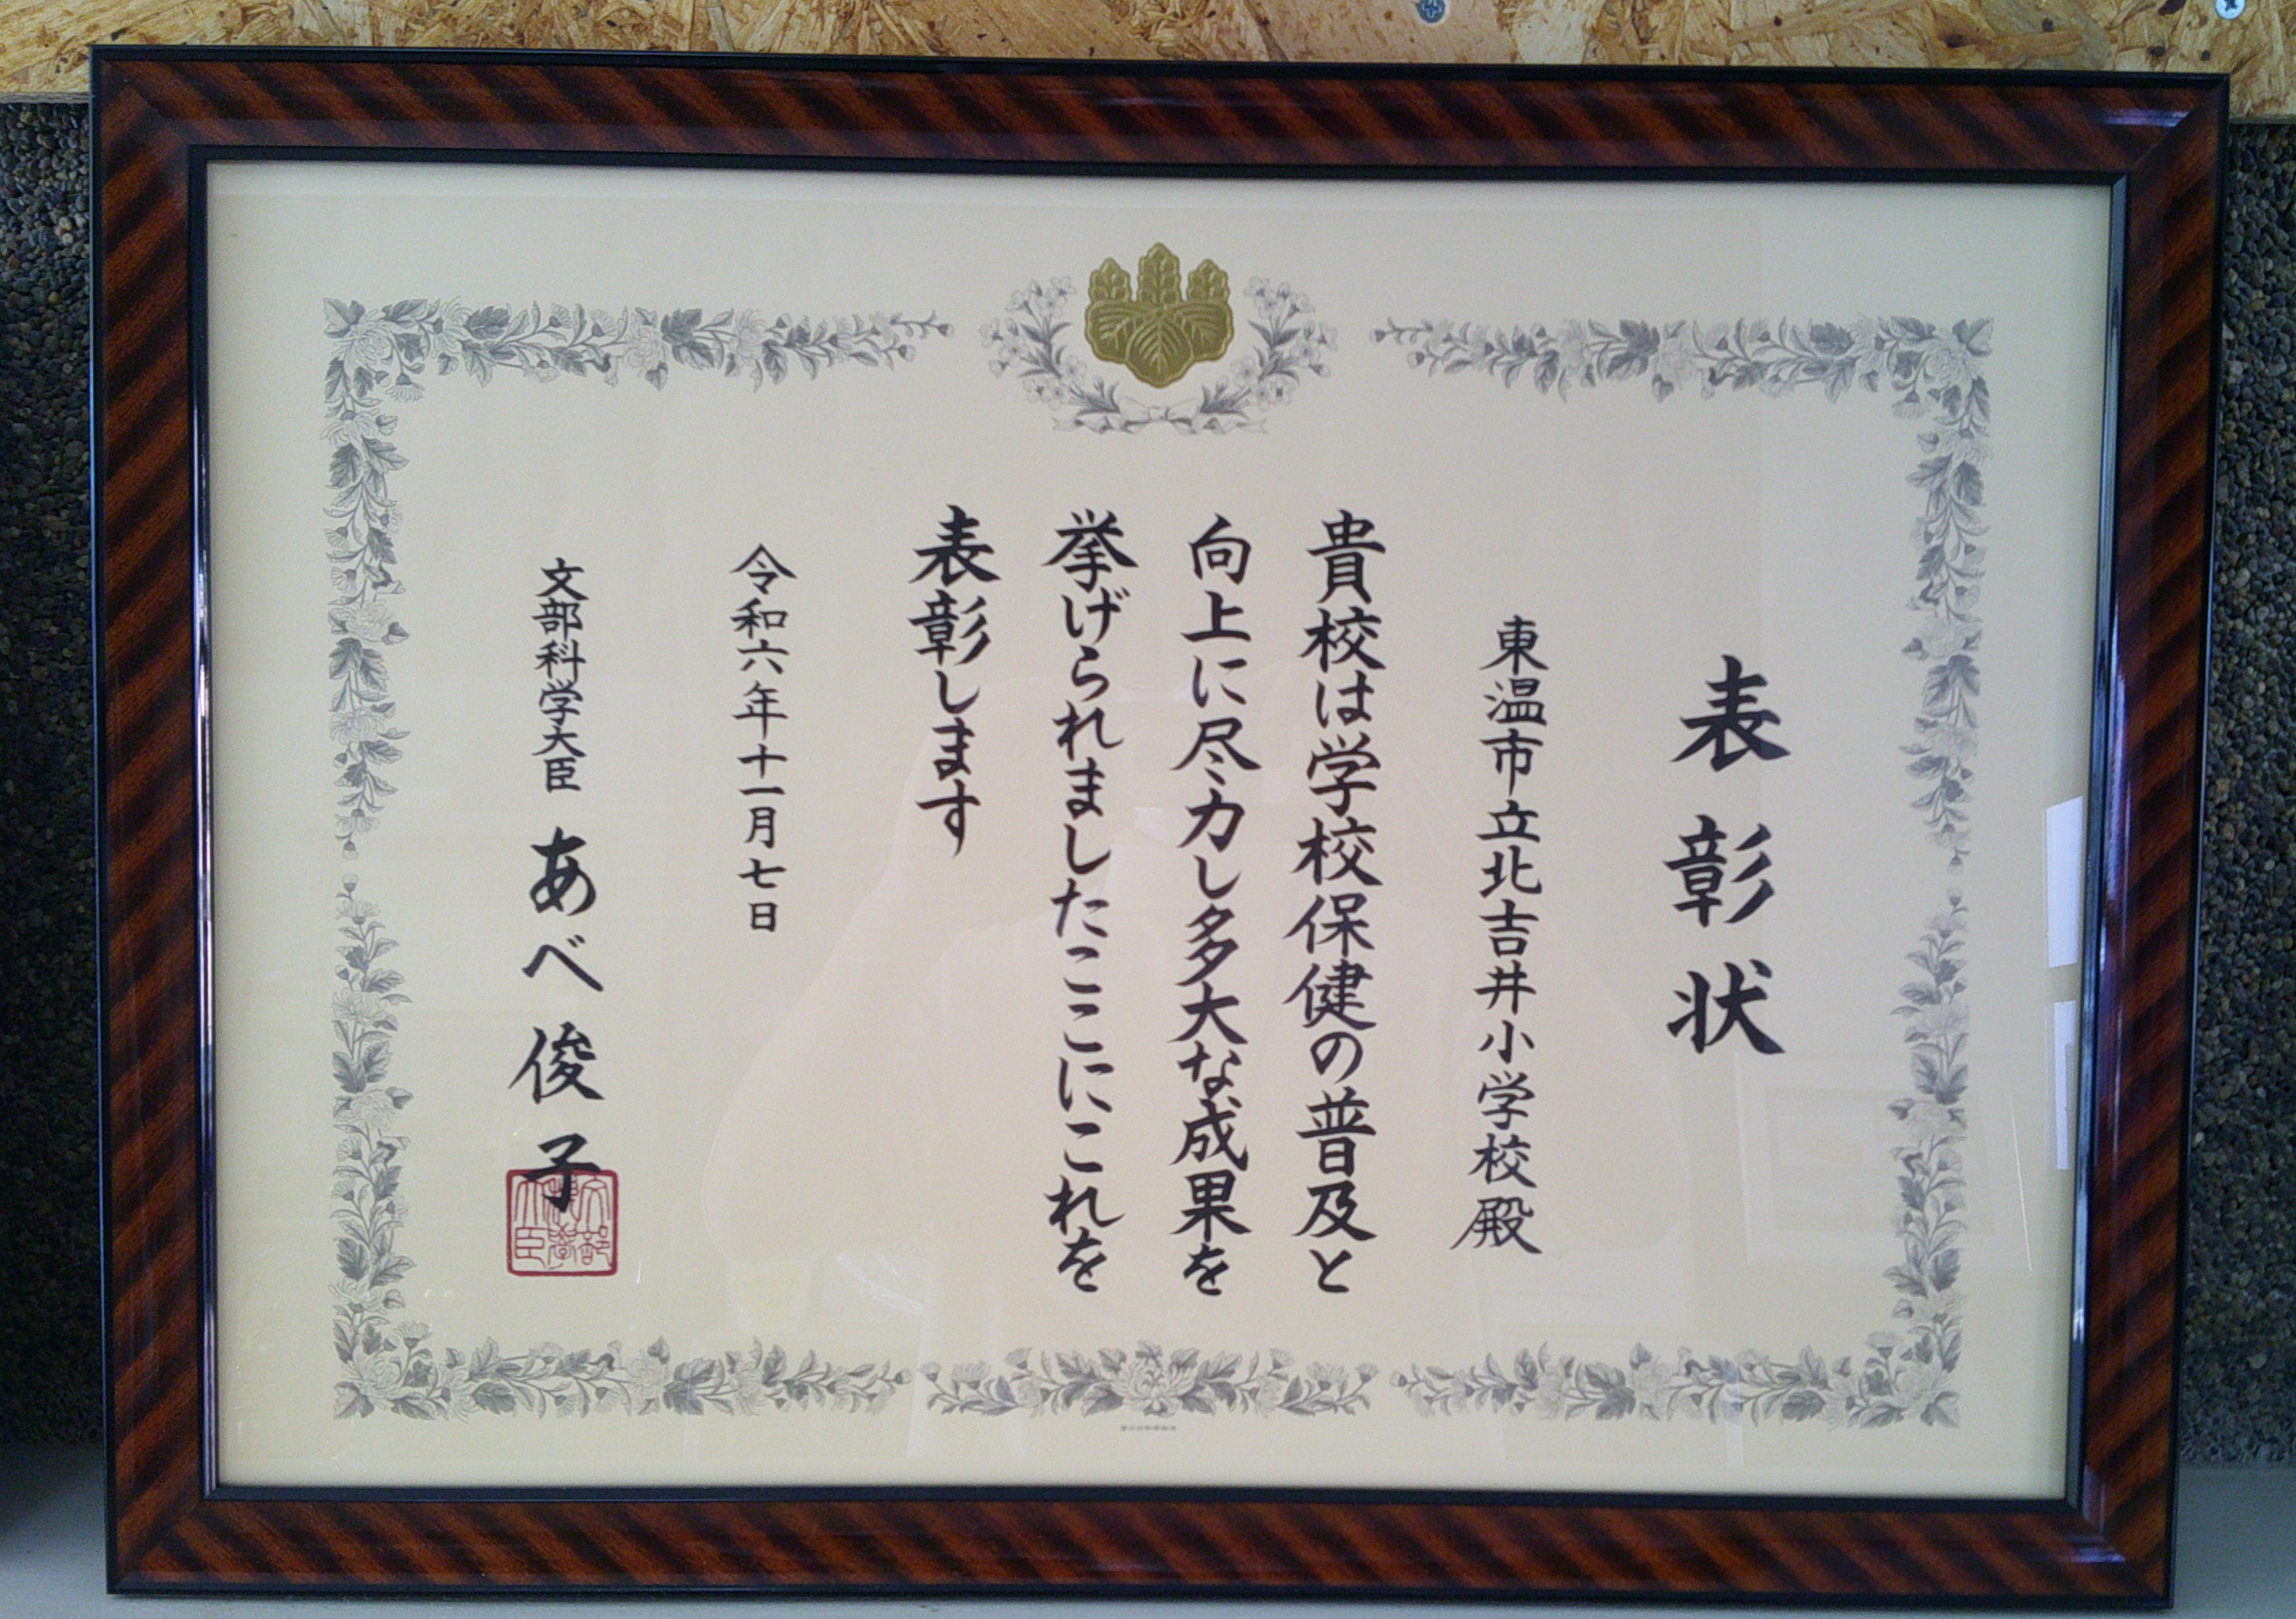 表彰状
東温市立北吉井小学校殿
貴校は学校保健の普及と
向上に尽力し多大な成果を
挙げられましたここにこれを
表彰します
令和六年十一月七日
文部科学大臣 あべ俊子